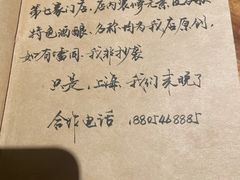 第七家门店,店内装修元素
特色酒酿、名称均为我店原创,
如有雷同,我非抄袭
只是,上海,我们来晚了
合作电话 18805468885